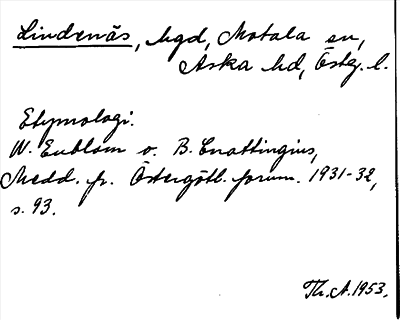 Lindenäs, hgd, Motala sn,
Aska hd, Östg. l.
Etymologi.
W. Enblom o. B. Cnattingius,
Medd. fr. Östergötl. fornm. 1931-32,
s. 93.
Th. A. 1953.